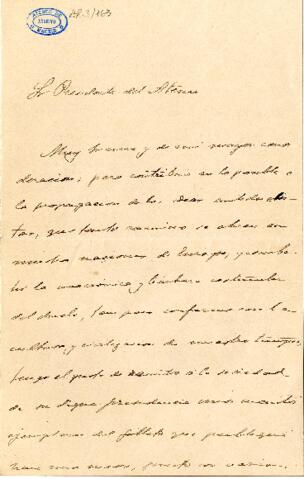 ATENEO DE MADRID
AP.3/163
Sr. Presidente del Ateneo
Muy Sr mio y de mi mayor consi
deracion: para contribuir en lo posible a
la propagacion de las ideas antiduelis-
tas, que tanto camino se abren en
muchas naciones de Europa, y comba-
tir la anacrónica y bárbara costumbre
del duelo, tan poco conforme con la
cultura y civilizacion de nuestros tiempos,
tengo el gusto de remitir á la sociedad
de su digna presidencia unos cuantos
ejemplares del folleto que publiqué
hace unos meses, junto con varios